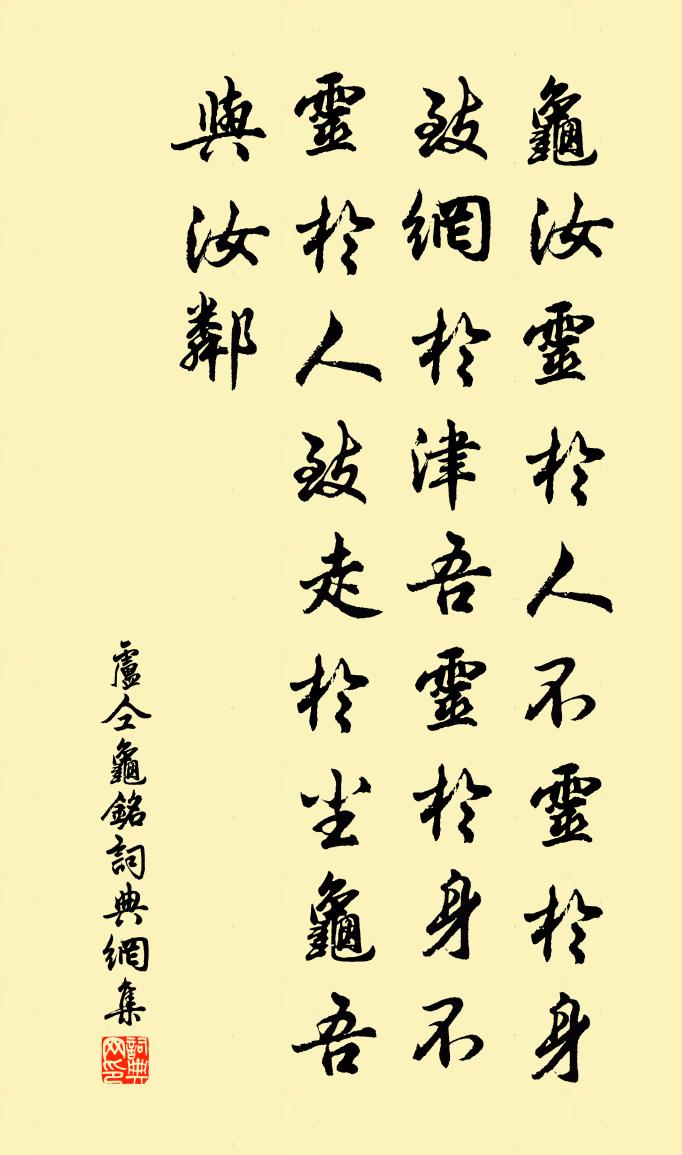 龜汝靈於人不靈於身
致網於津吾靈於身不
靈於人致走於尘龜吾
與汝鄰
盧仝龜銘詞典網集
詞典网印